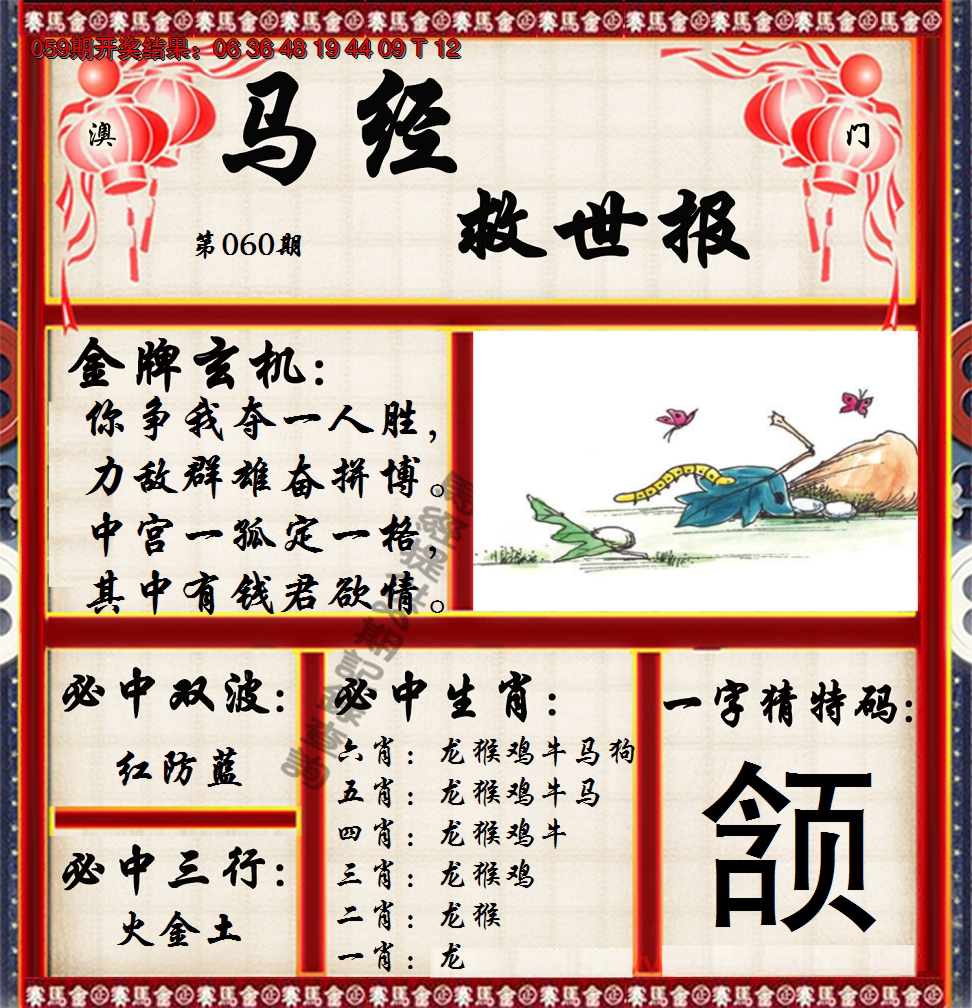 赛馬會
059期开奖结果：06 36 48 19 44 09 T 12
澳
门
马经
救世报
第060期
金牌玄机：
你争我夺一人胜，
力敌群雄奋拼博。
中宫一孤定一格，
其中有钱君欲情。
必中双波：
红防蓝
必中三行：
火金土
必中生肖：
六肖：龙猴鸡牛马狗
五肖：龙猴鸡牛马
四肖：龙猴鸡牛
三肖：龙猴鸡
二肖：龙猴
一肖：龙
一字猜特码：
颔